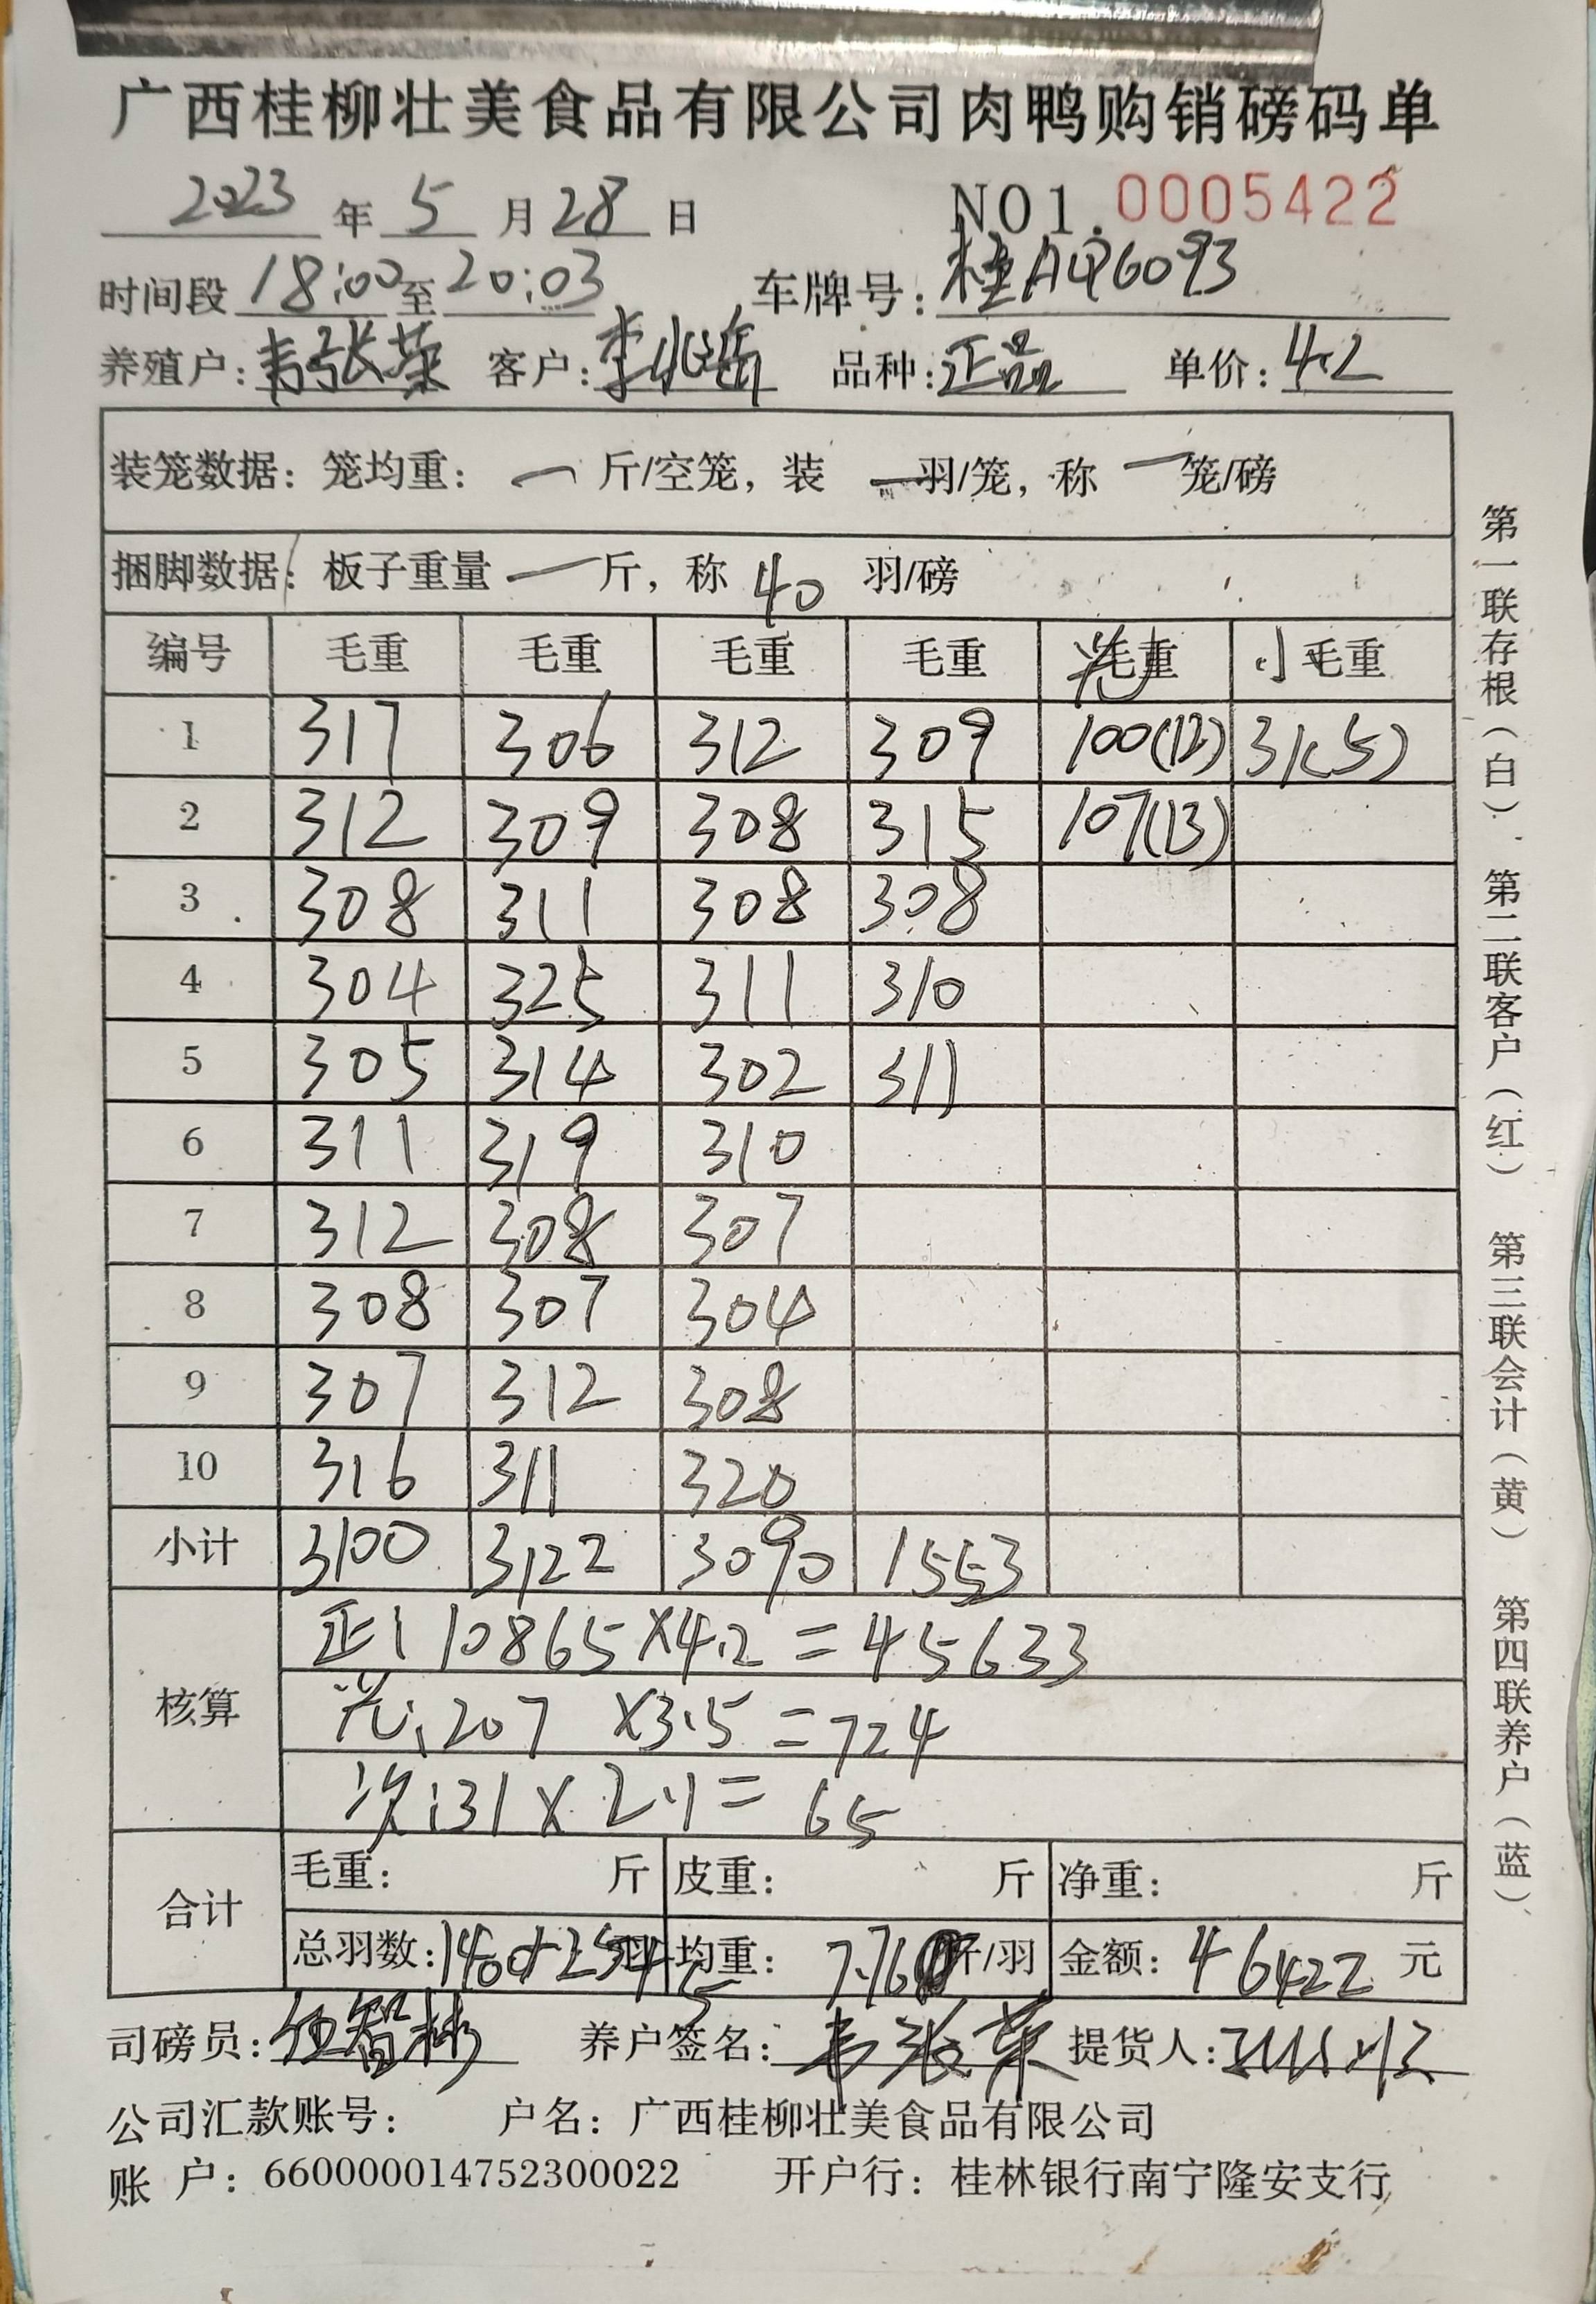 广西桂柳壮美食品有限公司肉鸭购销磅码单
2023 年 5 月 28 日 NO1. 0005422
时间段 18:00 至 20:03 车牌号: 桂AQ6093
养殖户: 韦张荣 客户: 李 品种: 正品 单价: 4.2
装笼数据: 笼均重: 一 斤/空笼, 装 一 羽/笼, 称 一 笼/磅
捆脚数据: 板子重量 一 斤, 称 40 羽/磅
编号 毛重 毛重 毛重 毛重 光毛重 小毛重
1 317 306 312 309 100(12) 31(5)
2 312 309 308 315 107(13)
3 308 311 308 308
4 304 325 311 310
5 305 314 302 311
6 311 319 310
7 312 308 307
8 308 307 304
9 307 312 308
10 316 311 320
小计 3100 3122 3090 1553
核算 正: 10865×4.2=45633
光: 207 ×3.5=724
次:31×2.1=65
合计 毛重: 斤 皮重: 斤 净重: 斤
总羽数: 1400+25+5 羽 均重: 7.76 斤/羽 金额: 46422 元
司磅员: 伍智彬 养户签名: 韦张荣 提货人:
公司汇款账号: 户名: 广西桂柳壮美食品有限公司
账 户: 660000014752300022 开户行: 桂林银行南宁隆安支行
第一联存根(白) 第二联客户(红) 第三联会计(黄) 第四联养户(蓝)